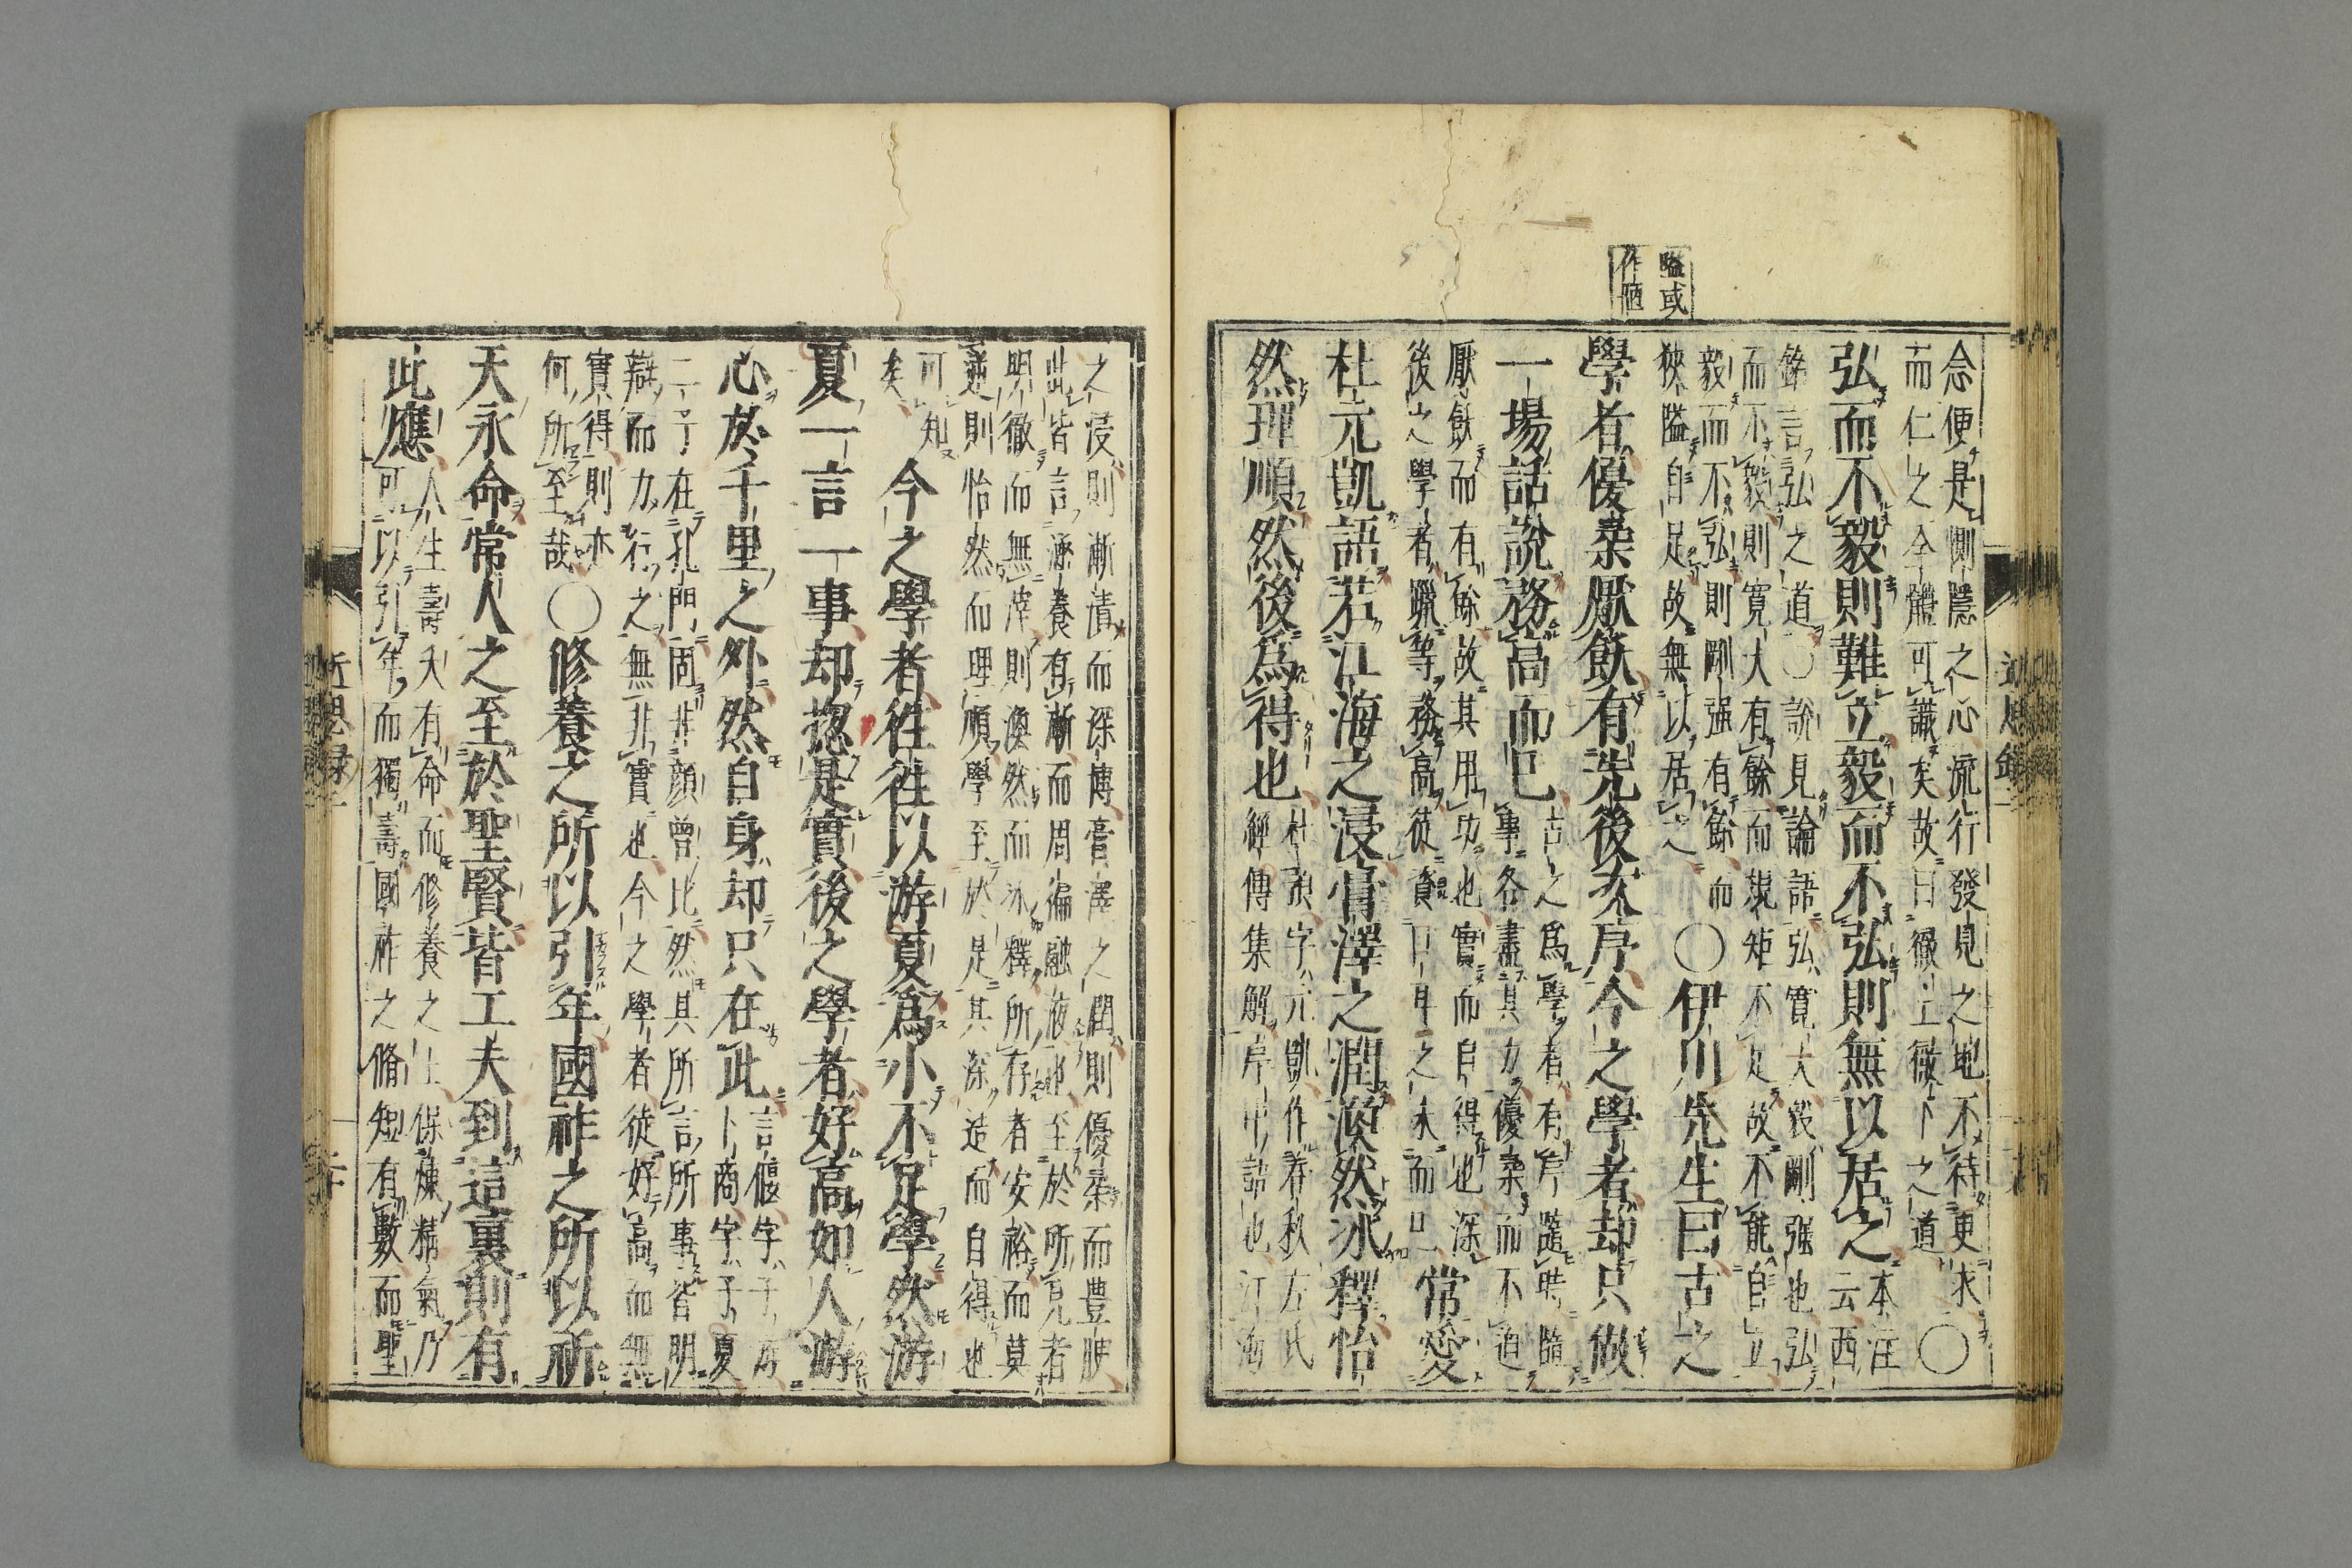 隘或
作陋
念便是惻隱之心流行發見之地不待更求
而仁之全體可識矣故曰徹上徹下之道
○
弘而不毅則難立毅而不弘則無以居之
本注
云西
銘言弘之道○說見論語弘寬大毅剛强也弘
而不毅則寬大有餘而規矩不足故不能自立
毅而不弘則剛强有餘而
狹隘自足故無以居之
○伊川先生曰古之
學者優柔厭飫有先後次序今之學者却只做
一場話說務高而已
古之爲學者有序隨時隨
事各盡其力優柔而不迫
厭飫而有餘故其用功也實而自得也深
後之學者躐等務高徒資口耳之末而已
常愛
杜元凱語若江海之浸膏澤之潤渙然冰釋怡
然理順然後爲得也
杜預字元凱作春秋左氏
經傳集解序中語也江海
之浸則漸漬而深博膏澤之潤則優柔而豊腴
此皆言涵養有漸而周徧融液也至於所見者
明徹而無滓則渙然而冰釋所存者安裕而莫
逆則怡然而理順學至於是其深造而自得也
可知
矣
今之學者徃徃以游夏爲小不足學然游
夏一言一事却揔是實後之學者好高如人游
心於千里之外然自身却只在此
言偃字子游
卜商字子夏
二子在孔門固非顔曾比然其所言所事皆明
辯而力行之無非實也今之學者徒好高而無
實得則亦
何所至哉
○修養之所以引年國祚之所以祈
天永命常人之至於聖賢皆工夫到這裏則有
此應
人生壽夭有命而修養之士保煉精氣乃
可以引年而獨壽國祚之脩短有數而聖
近思録二